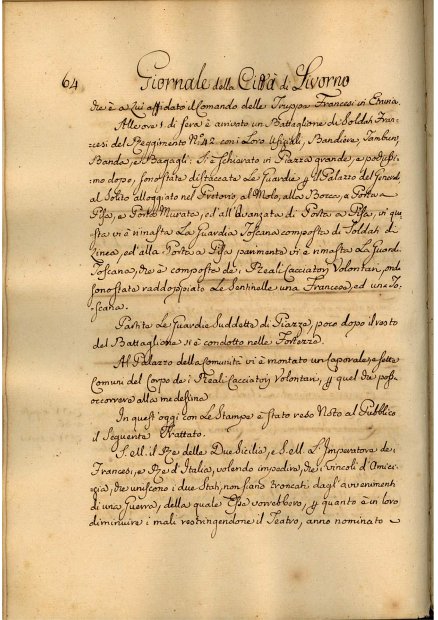 64 Giornale della Città di Livorno
che è a Lui affidato il Comando delle Truppe Francesi in Etruria.
Alle ore 1. di sera è arrivato un Battaglione di Soldati Fran-
cesi del Reggimento N.º 42. con i Loro Ufiziali, Bandiere, Tamburi,
Banda, e Bagagli: Si è schierato in Piazza grande, e pochissi-
mo dopo, sono state distaccate Le Guardie p il Palazzo del
al Solito alloggio nel Pretorio, al Molo, alla Bocca, a Porta a
Pisa, e Porta Murata, ed all'Avanzata di Porta a Pisa, vi que
sta vi è rimasta La Guardia Toscana composta di Soldati di
Linea, ed alla Porta a Pisa parimente vi è rimasta La Guard.
Toscana, che è composta de' i Reali Cacciatori Volontari, onde
sono state raddoppiate Le Sentinelle una Francese, ed una To-
scana.
Partite Le Guardie Suddette di Piazza, poco dopo il resto
del Battaglione si è condotto nelle Fortezze.
Al Palazzo della Comunità vi è montato un Caporale, e sette
Comuni del Corpo de i Reali Cacciatori Volontari, p quel che poss.
occorrere alla medesima
In quest'oggi con Le Stampe è stato reso Noto al Pubblico
il Seguente Trattato.
S. e ll. il Re delle Due Sicilie, e S. e ll. L'Imperatore de'
Francesi, e Re d'Italia, volendo impedire, che i vincoli d'Amici-
cizia, che uniscono i due Stati, non siano troncati dagl'avvenimenti
di una Guerra, della quale Esse vorrebbero, p quanto è in loro
diminuire i mali restringendone il Teatro, anno nominato